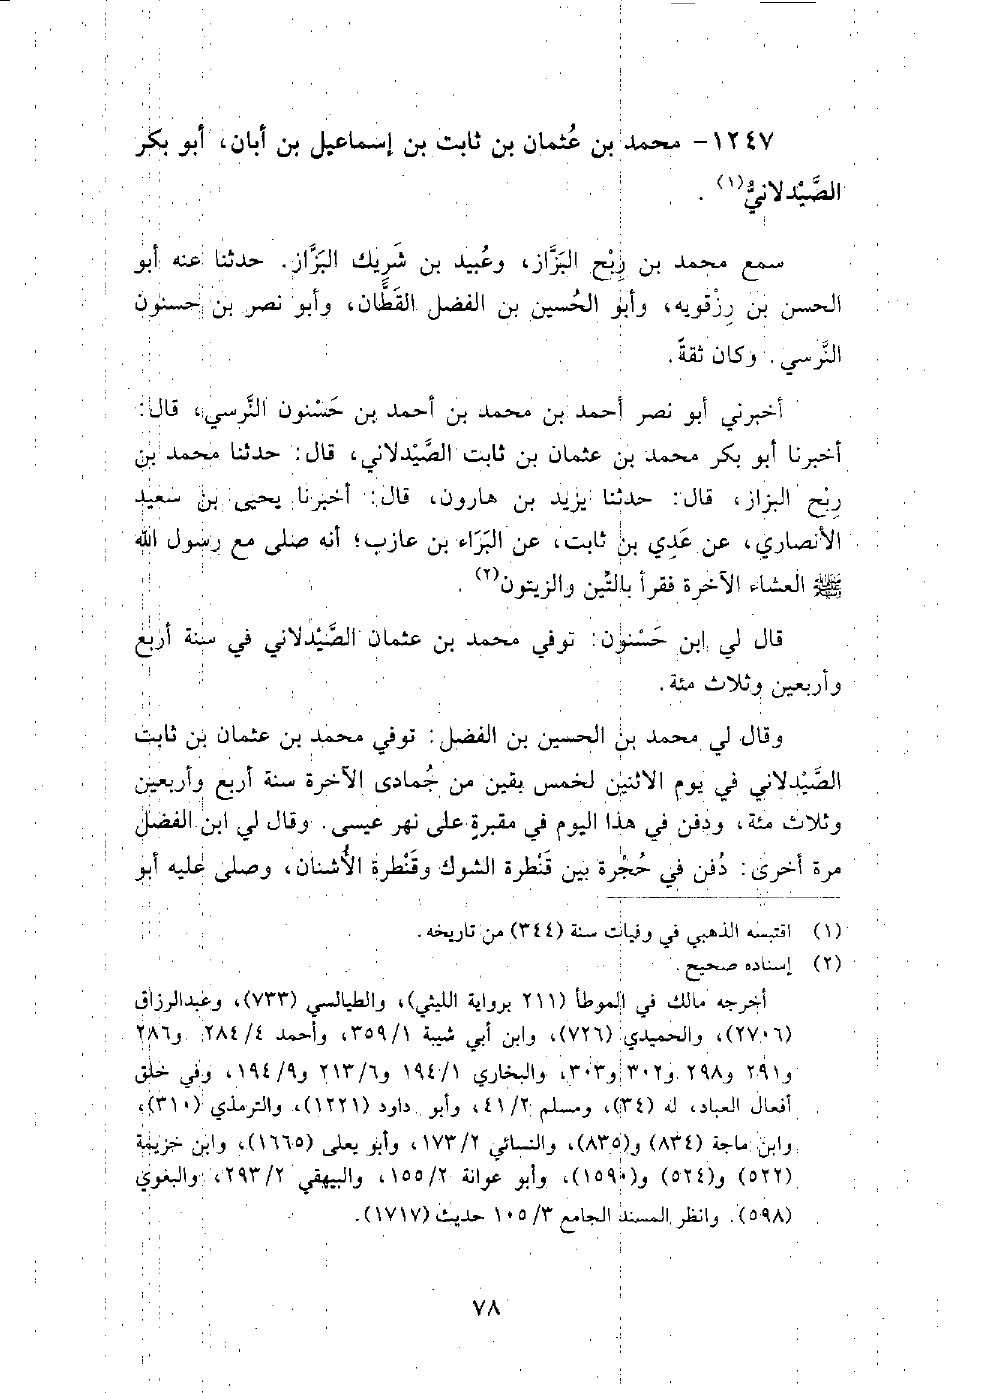 ١٢٤٧- محمد بن عُثمان بن ثابت بن إسماعيل بن أبان، أبو بكر
الصَّيْدلانيُّ(١) .
سمع محمد بن رِبْح البَزَّاز، وعُبيد بن شَريك البَزَّاز. حدثنا عنه أبو
الحسن بن رِزْقويه، وأبو الحُسين بن الفضل القَطَّان، وأبو نصر بن حسنون
النَّرسي. وكان ثقةً.
أخبرني أبو نصر أحمد بن محمد بن أحمد بن حَسْنون النَّرسي، قال:
أخبرنا أبو بكر محمد بن عثمان بن ثابت الصَّيْدلاني، قال: حدثنا محمد بن
رِبْح البزاز، قال: حدثنا يزيد بن هارون، قال: أخبرنا يحيى بن سعيد
الأنصاري، عن عَدِي بن ثابت، عن البَرَاء بن عازب؛ أنه صلى مع رسول الله
ﷺ العشاء الآخرة فقرأ بالتِّين والزيتون(٢) .
قال لي ابن حَسْنون: توفي محمد بن عثمان الصَّيْدلاني في سنة أربع
وأربعين وثلاث مئة.
وقال لي محمد بن الحسين بن الفضل: توفي محمد بن عثمان بن ثابت
الصَّيْدلاني في يوم الاثنين لخمس بقين من جُمادى الآخرة سنة أربع وأربعين
وثلاث مئة، ودفن في هذا اليوم في مقبرةٍ على نهر عيسى. وقال لي ابن الفضل
مرة أخرى: دُفن في حُجْرة بين قَنْطرة الشوك وقَنْطرة الأُشنان، وصلى عليه أبو
(١) اقتبسه الذهبي في وفيات سنة (٣٤٤) من تاريخه.
(٢) إسناده صحيح.
أخرجه مالك في الموطأ (٢١١ برواية الليثي)، والطيالسي (٧٣٣)، وعبدالرزاق
(٢٧٠٦)، والحميدي (٧٢٦)، وابن أبي شيبة ٣٥٩/١، وأحمد ٢٨٤/٤ و٢٨٦
و٢٩١ و٢٩٨ و٣٠٢ و٣٠٣، والبخاري ١٩٤/١ و٢١٣/٦ و١٩٤/٩، وفي خلق
أفعال العباد، له (٣٤)، ومسلم ٤١/٢، وأبو داود (١٢٢١)، والترمذي (٣١٠)،
وابن ماجة (٨٣٤) و(٨٣٥)، والنسائي ١٧٣/٢، وأبو يعلى (١٦٦٥)، وابن خزيمة
(٥٢٢) و(٥٢٤) و(١٥٩٠)، وأبو عوانة ١٥٥/٢، والبيهقي ٢٩٣/٢، والبغوي
(٥٩٨). وانظر المسند الجامع ١٠٥/٣ حديث (١٧١٧).
٧٨